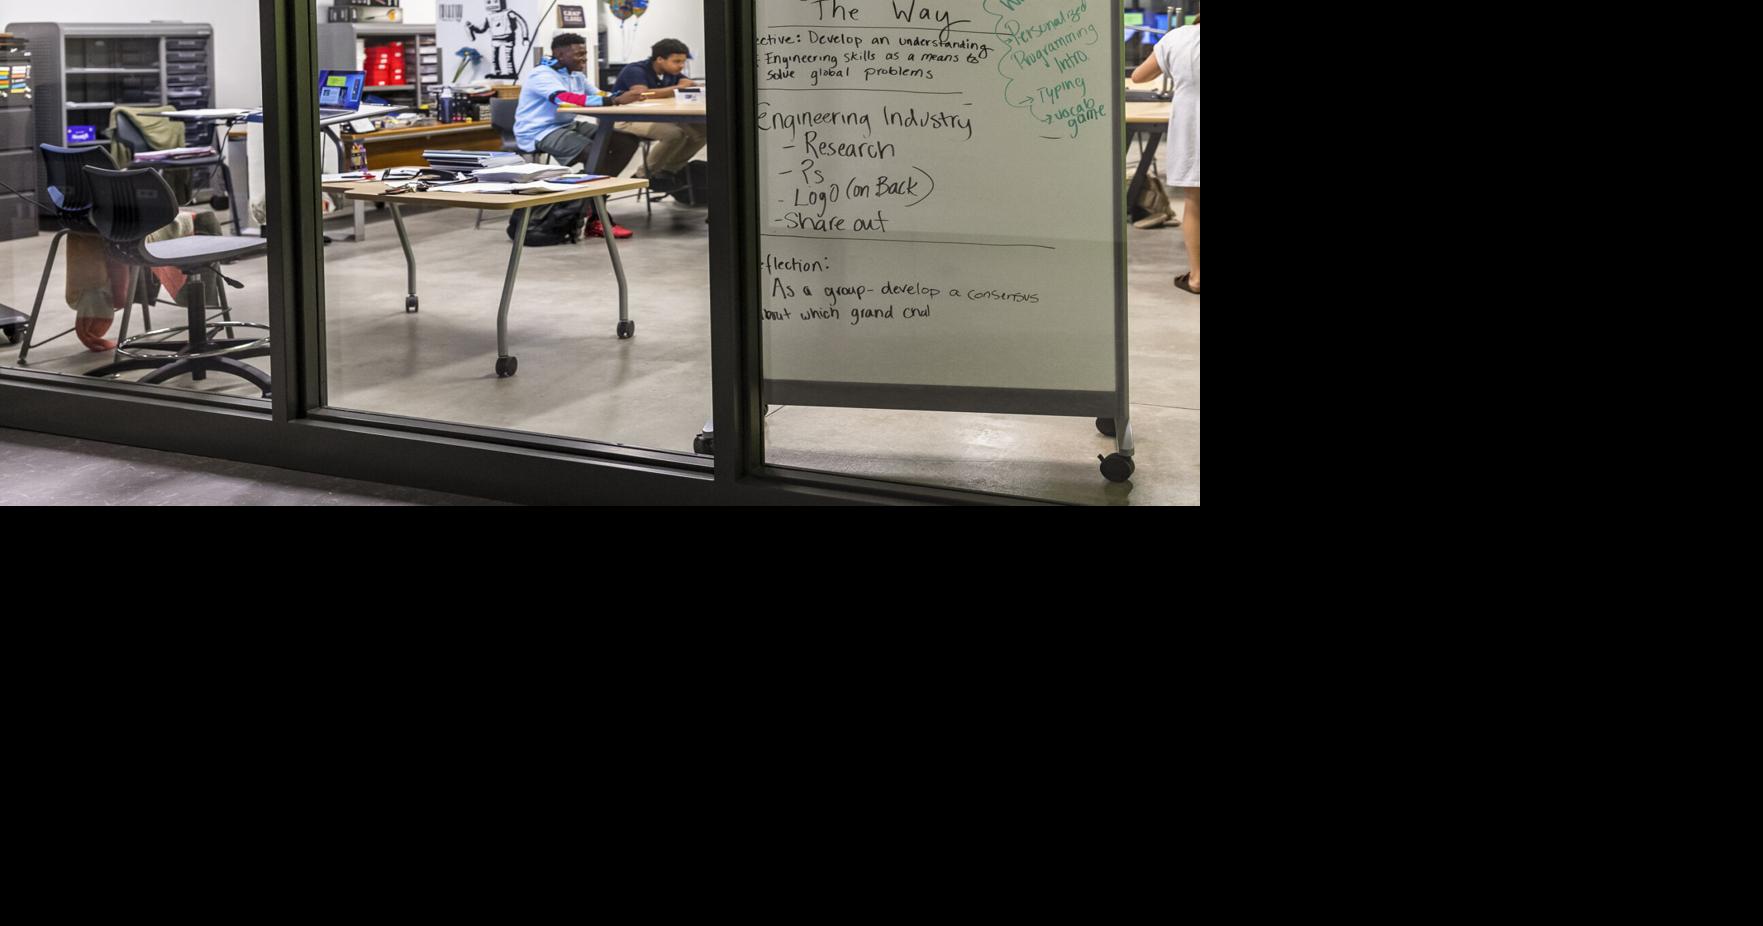 The Way
ective: Develop an understanding
Engineering skills as a means to
solve global problems
Engineering Industry
- Research
- ?s
- Logo (on Back)
- Share out
flection:
As a group - develop a consensus
bout which grand chal
Personalized
Programming
Intro
→ Typing
→ vocab
game